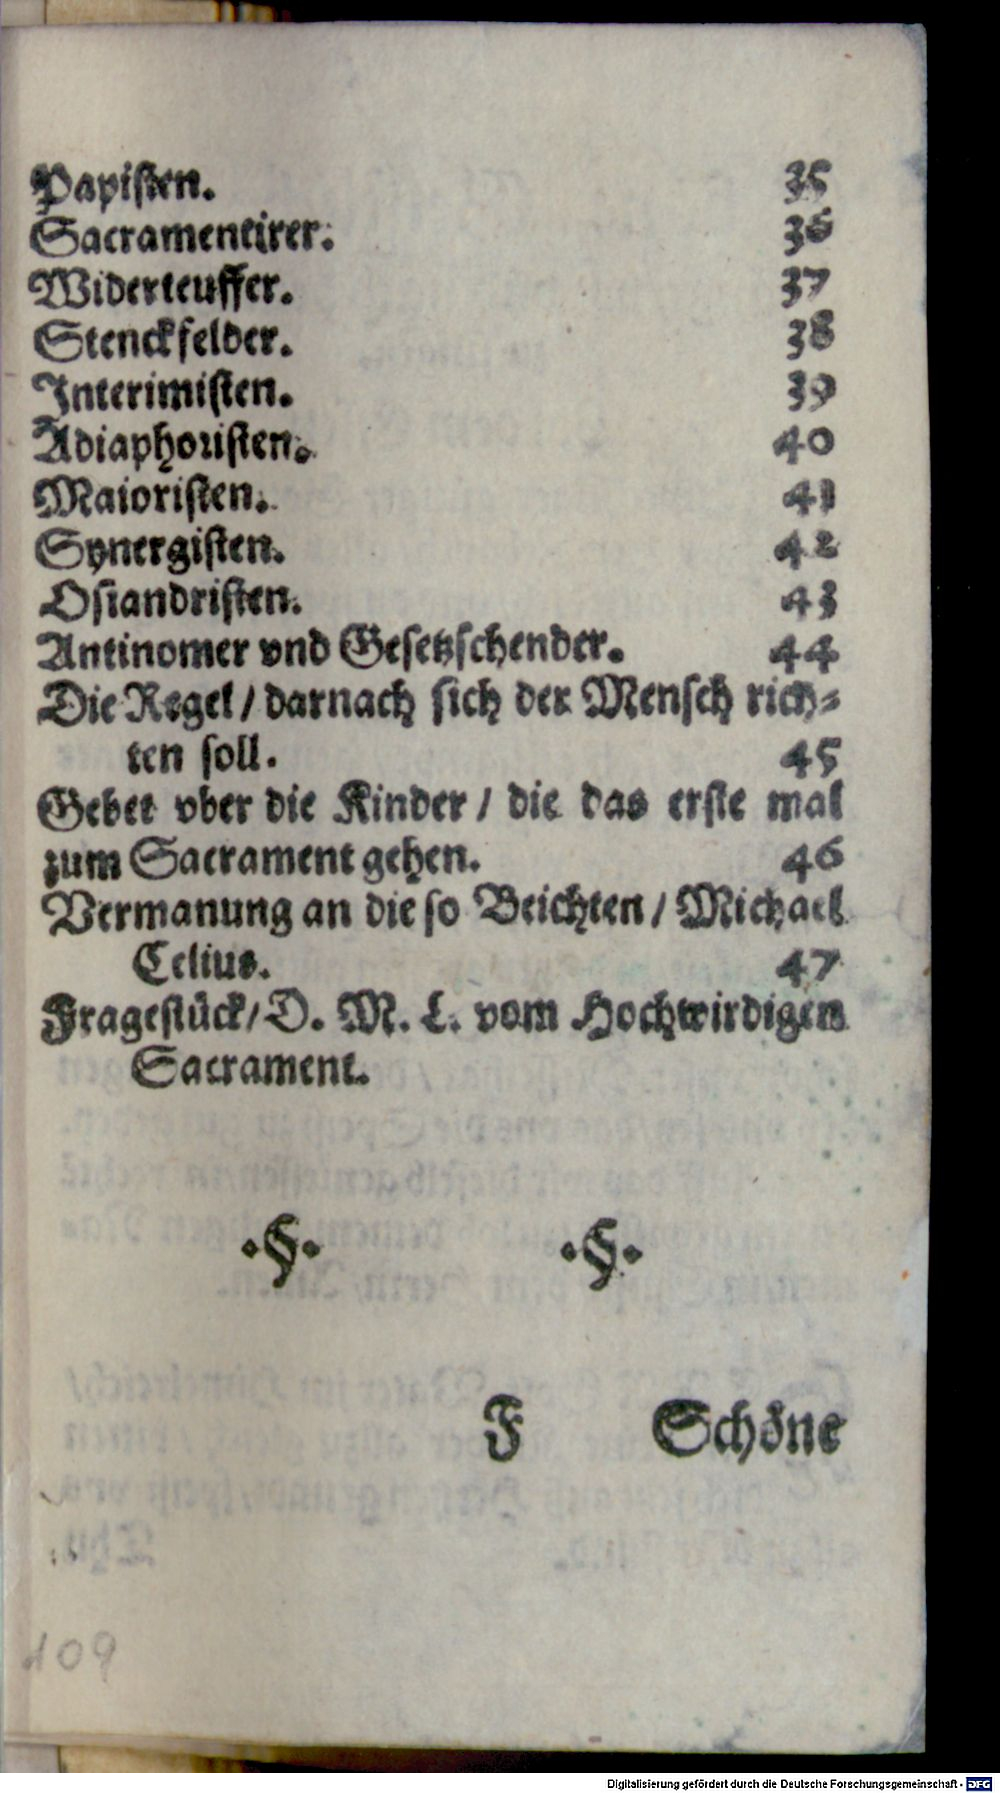 Papisten. 35
Sacramentirer. 36
Widerteuffer. 37
Stenckfelder. 38
Interimisten. 39
Adiaphoristen. 40
Maioristen. 41
Synergisten. 42
Osiandristen. 43
Antinomer vnd Gesetzschender. 44
Die Regel / darnach sich der Mensch rich⸗
ten soll. 45
Gebet vber die Kinder / die das erste mal
zum Sacrament gehen. 46
Vermanung an die so Beichten / Michael
Celius. 47
Fragestück / D. M. L. vom Hochwirdigen
Sacrament.
·§· ·§·
F Schöne
109
Digitalisierung gefördert durch die Deutsche Forschungsgemeinschaft - DFG